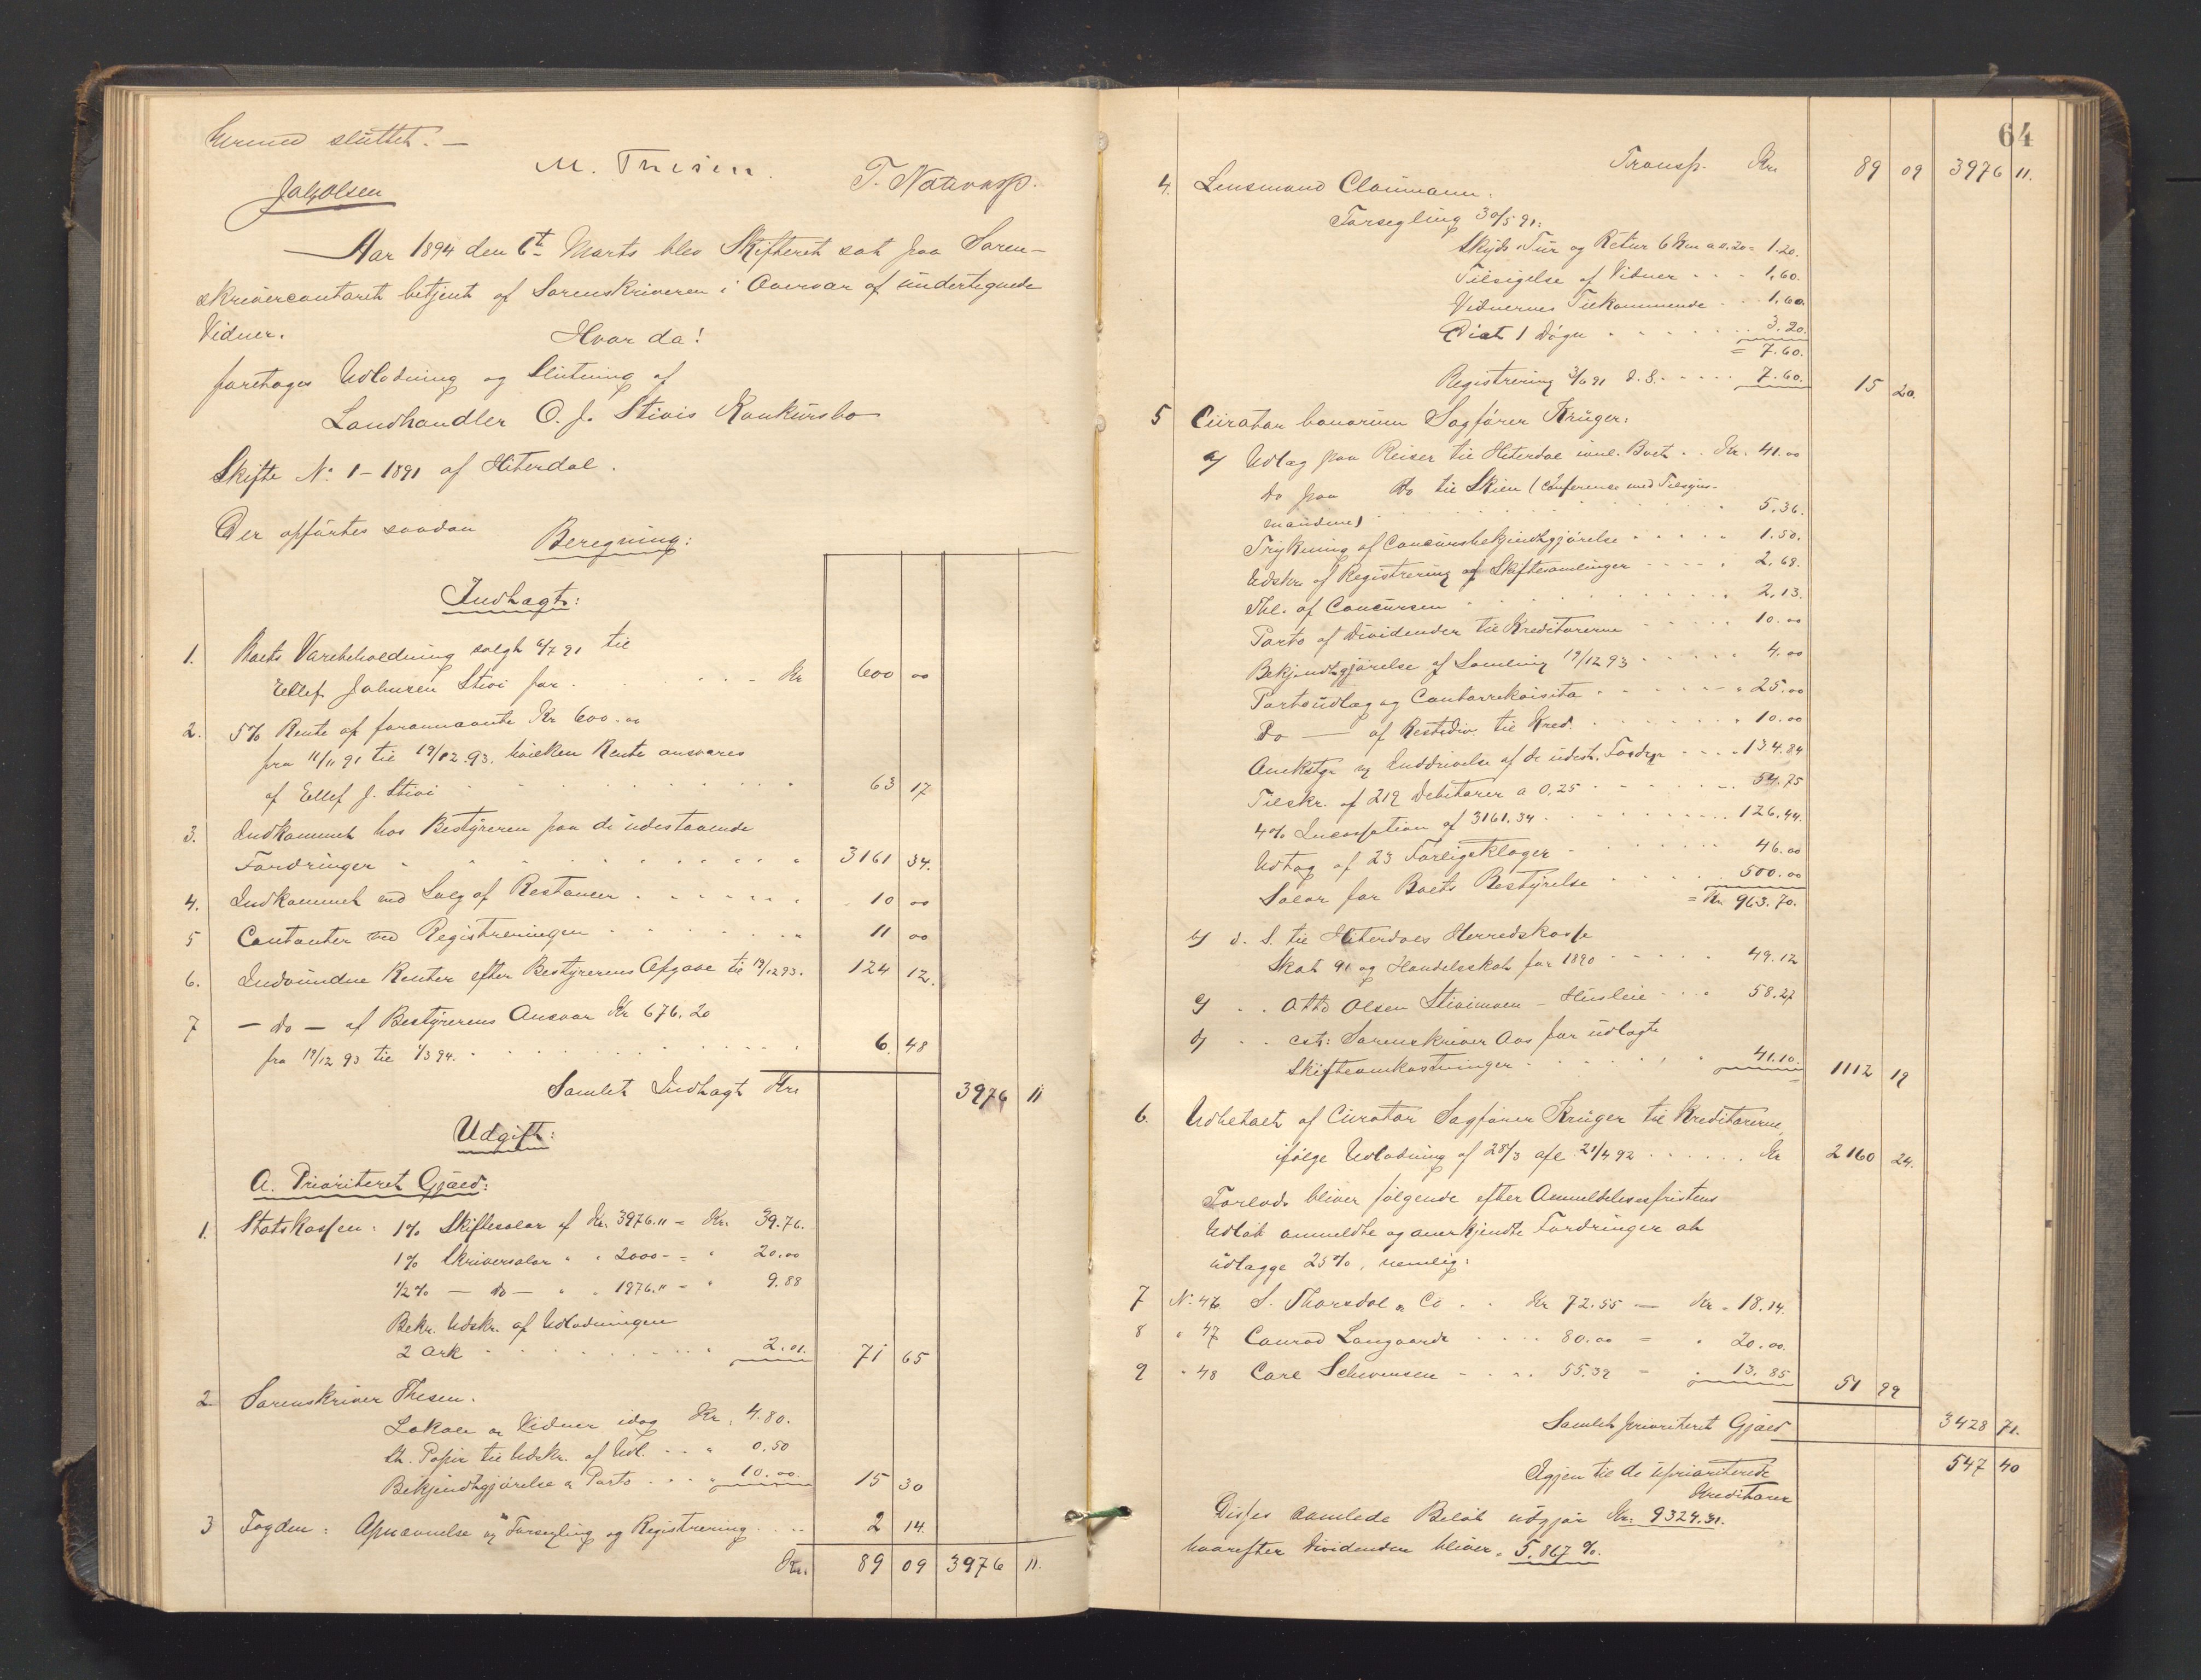 hermed sluttet. —
M. Thesen. T. Natvorsp.
Joh. Olsen
Aar 1894 den 6te Marts blev Skifteret sat paa Soren-
skrivercontoret betjent af Sorenskriveren i Overvær af undertegnede
Vidner.
Hvorda!
foretoges Udlodning og Slutning af
Landhandler O. J. Stivis Konkursbo
Skifte No 1 - 1891 af Hiterdal.
Der opførtes saadan
Beregning:
Indtægt:
1. Boets Varebeholdning solgt 6/7 91 til
Ellef Johnsen Stivi for . . . . . Kr 600 00
2. 5% Rente af forannævnte Kr 600.00
fra 11/11 91 til 19/12.93, hvilken Rente ansvares
af Ellef J. Stivi . . . . . 63 17
3. Indkommet hos Bestyreren paa de udestaaende
Fordringer . . . . . 3161 34.
4. Indkommet ved Salg af Restancer . . . . . 10 00
5 Contanter ved Registreringen . . . . . 11 00
6. Indvundne Renter efter Bestyrerens Opgave til 19/12 93. 124 12.
7 — do — af Bestyrerens Ansvar Kr 676.20
fra 19/12 93 til 1/3 94. . . . . . 6. 48
Samlet Indtægt Kr 3976 11
Udgift:
A. Prioriteret Gjæld:
1. Statskassen: 1% Skiftesalær af Kr. 3976.11 = Kr. 39.76.
1% Skriversalær " " 2000 - = " 20.00
1/2% — do — " " 1976.11 = " 9.88
Bekr. Udskr. af Udlodningen
2 Ark . . . . . 2.01. 71 65
2 Sorenskriver Thesen.
Lokale og Vidner idag Kr. 4.80.
St. Papir til Udskr. af Udl. . . " 0.50
Bekjendtgjørelse & Porto . . . " 10.00. 15 30
3 Fogden: Opnævnelse og Forsegling og Registrering . . . 2 14.
Kr. 89 09 3976 11.
64
Transp. Kr 89 09 3976 11.
4. Lensmand Claumann.
Forsegling 30/5 91:
Skyds Tur og Retur 6 Km a 0.20 = 1.20.
Tilsigelse af Vidner . . . 1.60.
Vidnernes Tilkommende . . . 1.60.
Diæt 1 Døgn . . . . . 3.20.
= 7.60.
Registrering 3/6 91 d. S. . . . . 7.60. 15 20.
5 Curator bonorum Sagfører Krüger:
a) Udlæg paa Reiser til Hiterdal inkl. Boet . . Kr. 41.00
do paa do til Skien (Conference med Tilsyns-
mændene) . . . . . 5.36.
Trykning af Concursbekjendtgjørelse . . . . . 1.50.
Udskr. af Registrering og Skiftesamlinger . . . . 2.68.
Thl. af Concursen . . . . . 2.13.
Porto af Dividender til Kreditorerne . . . . 10.00
Bekjendtgjørelse af Samling 19/12 93 . . . . 4.00
Portoudlæg og Contorrekvisita . . . . . 25.00
Do — af Restediv. til Kred. . . . . . 10.00
Omkostgr. og Inddrivelse af de udest. Fordgr . . . . 134.84
Tilskr. af 219 Debitorer a 0,25 . . . . . 54.75
4% Incassation af 3161.34 . . . . . 126.44.
Udtag af 23 Forligsklager . . . . . 46.00
Salær for Boets Bestyrelse . . . . . 500.00
= Kr 963.70.
b) d. S. til Hiterdals Herredskasse
Skat 91 og Handelsskat for 1890 . . . . . 49.12
c) . . Otto Olsen Stivimoen - Husleie . . . 58.27
d) . . cst: Sorenskriver Aas for udlagte
Skifteomkostninger . . . . . 41.10. 1112 19
6. Udbetalt af Curator Sagfører Krüger til Kreditorerne
ifølge Udlodning af 28/3 afl. 21/4 92 . . . . . Kr 2160 24.
Forlods bliver følgende efter Anmeldelsesfristens
Udløb anmeldte og anerkjendte Fordringer at
udlægge 25%, nemlig:
7 No 46 S. Thorsdal & Co . . Kr 72.55 — Kr. 18.14.
8 " 47 Conrad Langaard . . . . 80.00 = " 20.00.
9 " 48 Carl Schwensen . . . . 55.39 - . 13.85 51 99
Samlet prioriteret Gjæld 3428 71.
Igjen til de uprioriterede 547 40
Kreditorer
Disses samlede Beløb udgjør Kr. 9329.31.
hvorefter Dividenden bliver = 5.867 %.